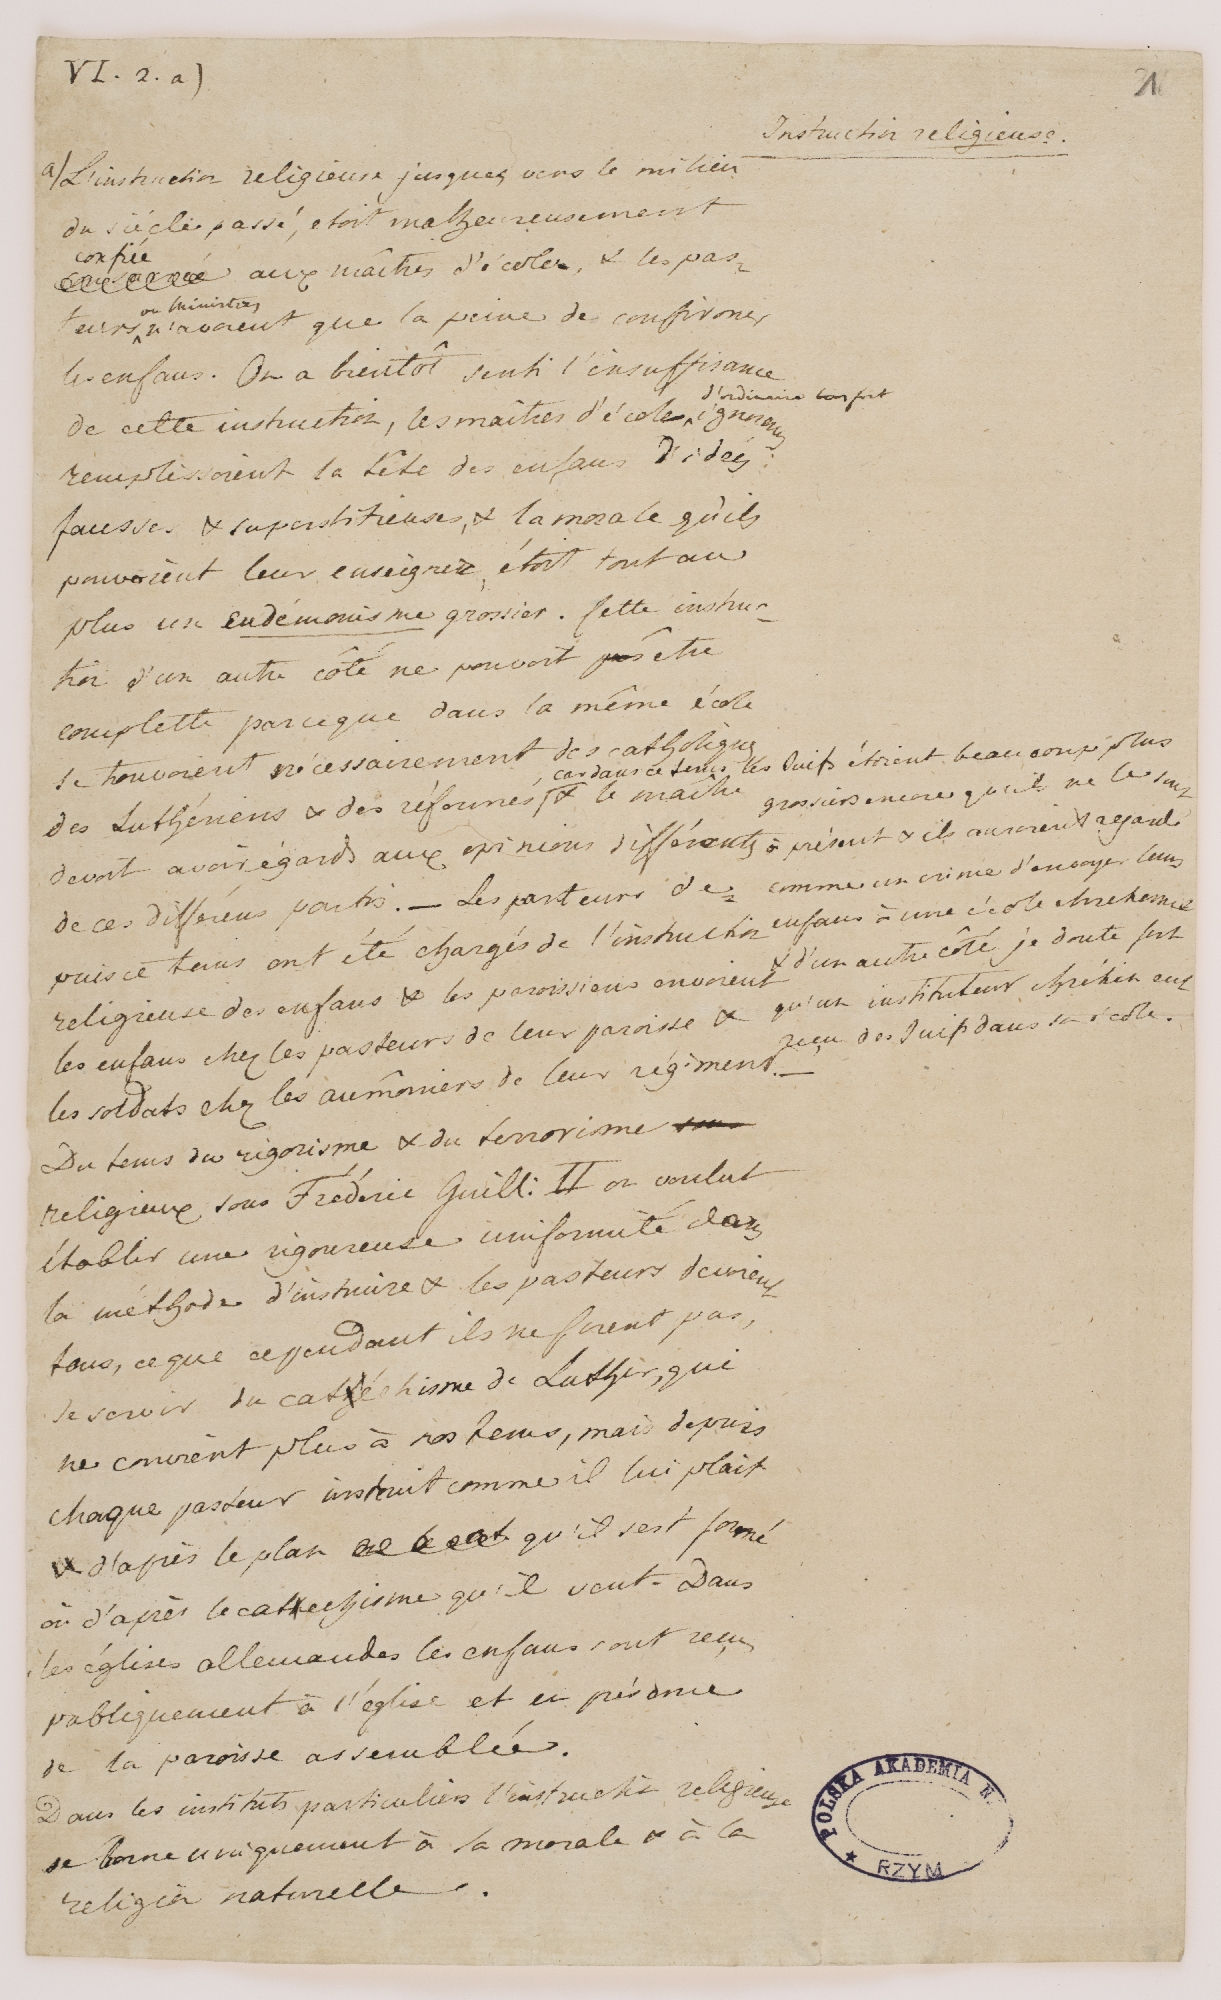 VI. 2. a)
21
Instruction religieuse.
a/ L'instruction religieuse jusques vers le milieu
du siécle passé, etoit malheureusement
confiée
aux maîtres d'écoles, & les pas=
ou Ministres
teurs n'avoient que la peine de confirmer
les enfans. On a bientôt senti l'insuffisance
d'ordinaire fort
de cette instruction, les maîtres d'école, ignorans
remplissoient la tête des enfans d'idées
fausses & superstitieuses, & la morale qu'ils
pouvoient leur enseigner, étoit tout au
plus un eudémonisme grossier. Cette instruc=
tion d'un autre côté ne pouvoit pas être
complette parceque dans la même école
se trouvoient nécessairement des catholiques
des Luthériens & des réformés, & le maître
devoit avoir égards aux opinions différentes
de ces différens partis. — Les pasteurs de=
puis ce tems ont été chargés de l'instruction
religieuse des enfans & les paroissiens envoient
les enfans chez les pasteurs de leur paroisse &
les soldats chez les aumôniers de leur régiment. —
, car dans ce tems les Juifs étoient beaucoup plus
grossiers encore qu'ils ne le sont
à présent & ils auroient regardé
comme un crime d'envoyer leurs
enfans à une école chretienne
& d'un autre côté je doute fort
qu'un instituteur chrétien eut
reçu des Juifs dans son école.
Du tems du rigorisme & du terrorisme
religieux sous Fréderic Guill: II on voulut
établir une rigoureuse uniformité dans
la méthode d'instruire & les pasteurs devoient
tous, ce que cependant ils ne firent pas,
se servir du catéchisme de Luther, qui
ne convient plus à nos tems, mais depuis
chaque pasteur instruit comme il lui plait
& d'après le plan qu'il s'est formé
ou d'après le catechisme qu'il veut. Dans
les églises allemandes les enfans sont reçus
publiquement à l'église et en présence
de la paroisse assemblée.
Dans les instituts particuliers l'instruction religieuse
se borne uniquement à la morale & à la
religion naturelle.
POLSKA AKADEMIA N.
★ RZYM